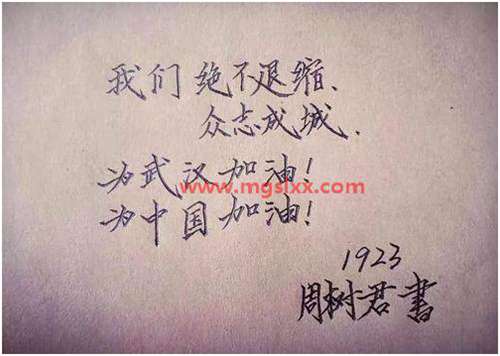 我们绝不退缩、
众志成城、
为武汉加油！
www.mgslxx.com
为中国加油！
1923
周树君書